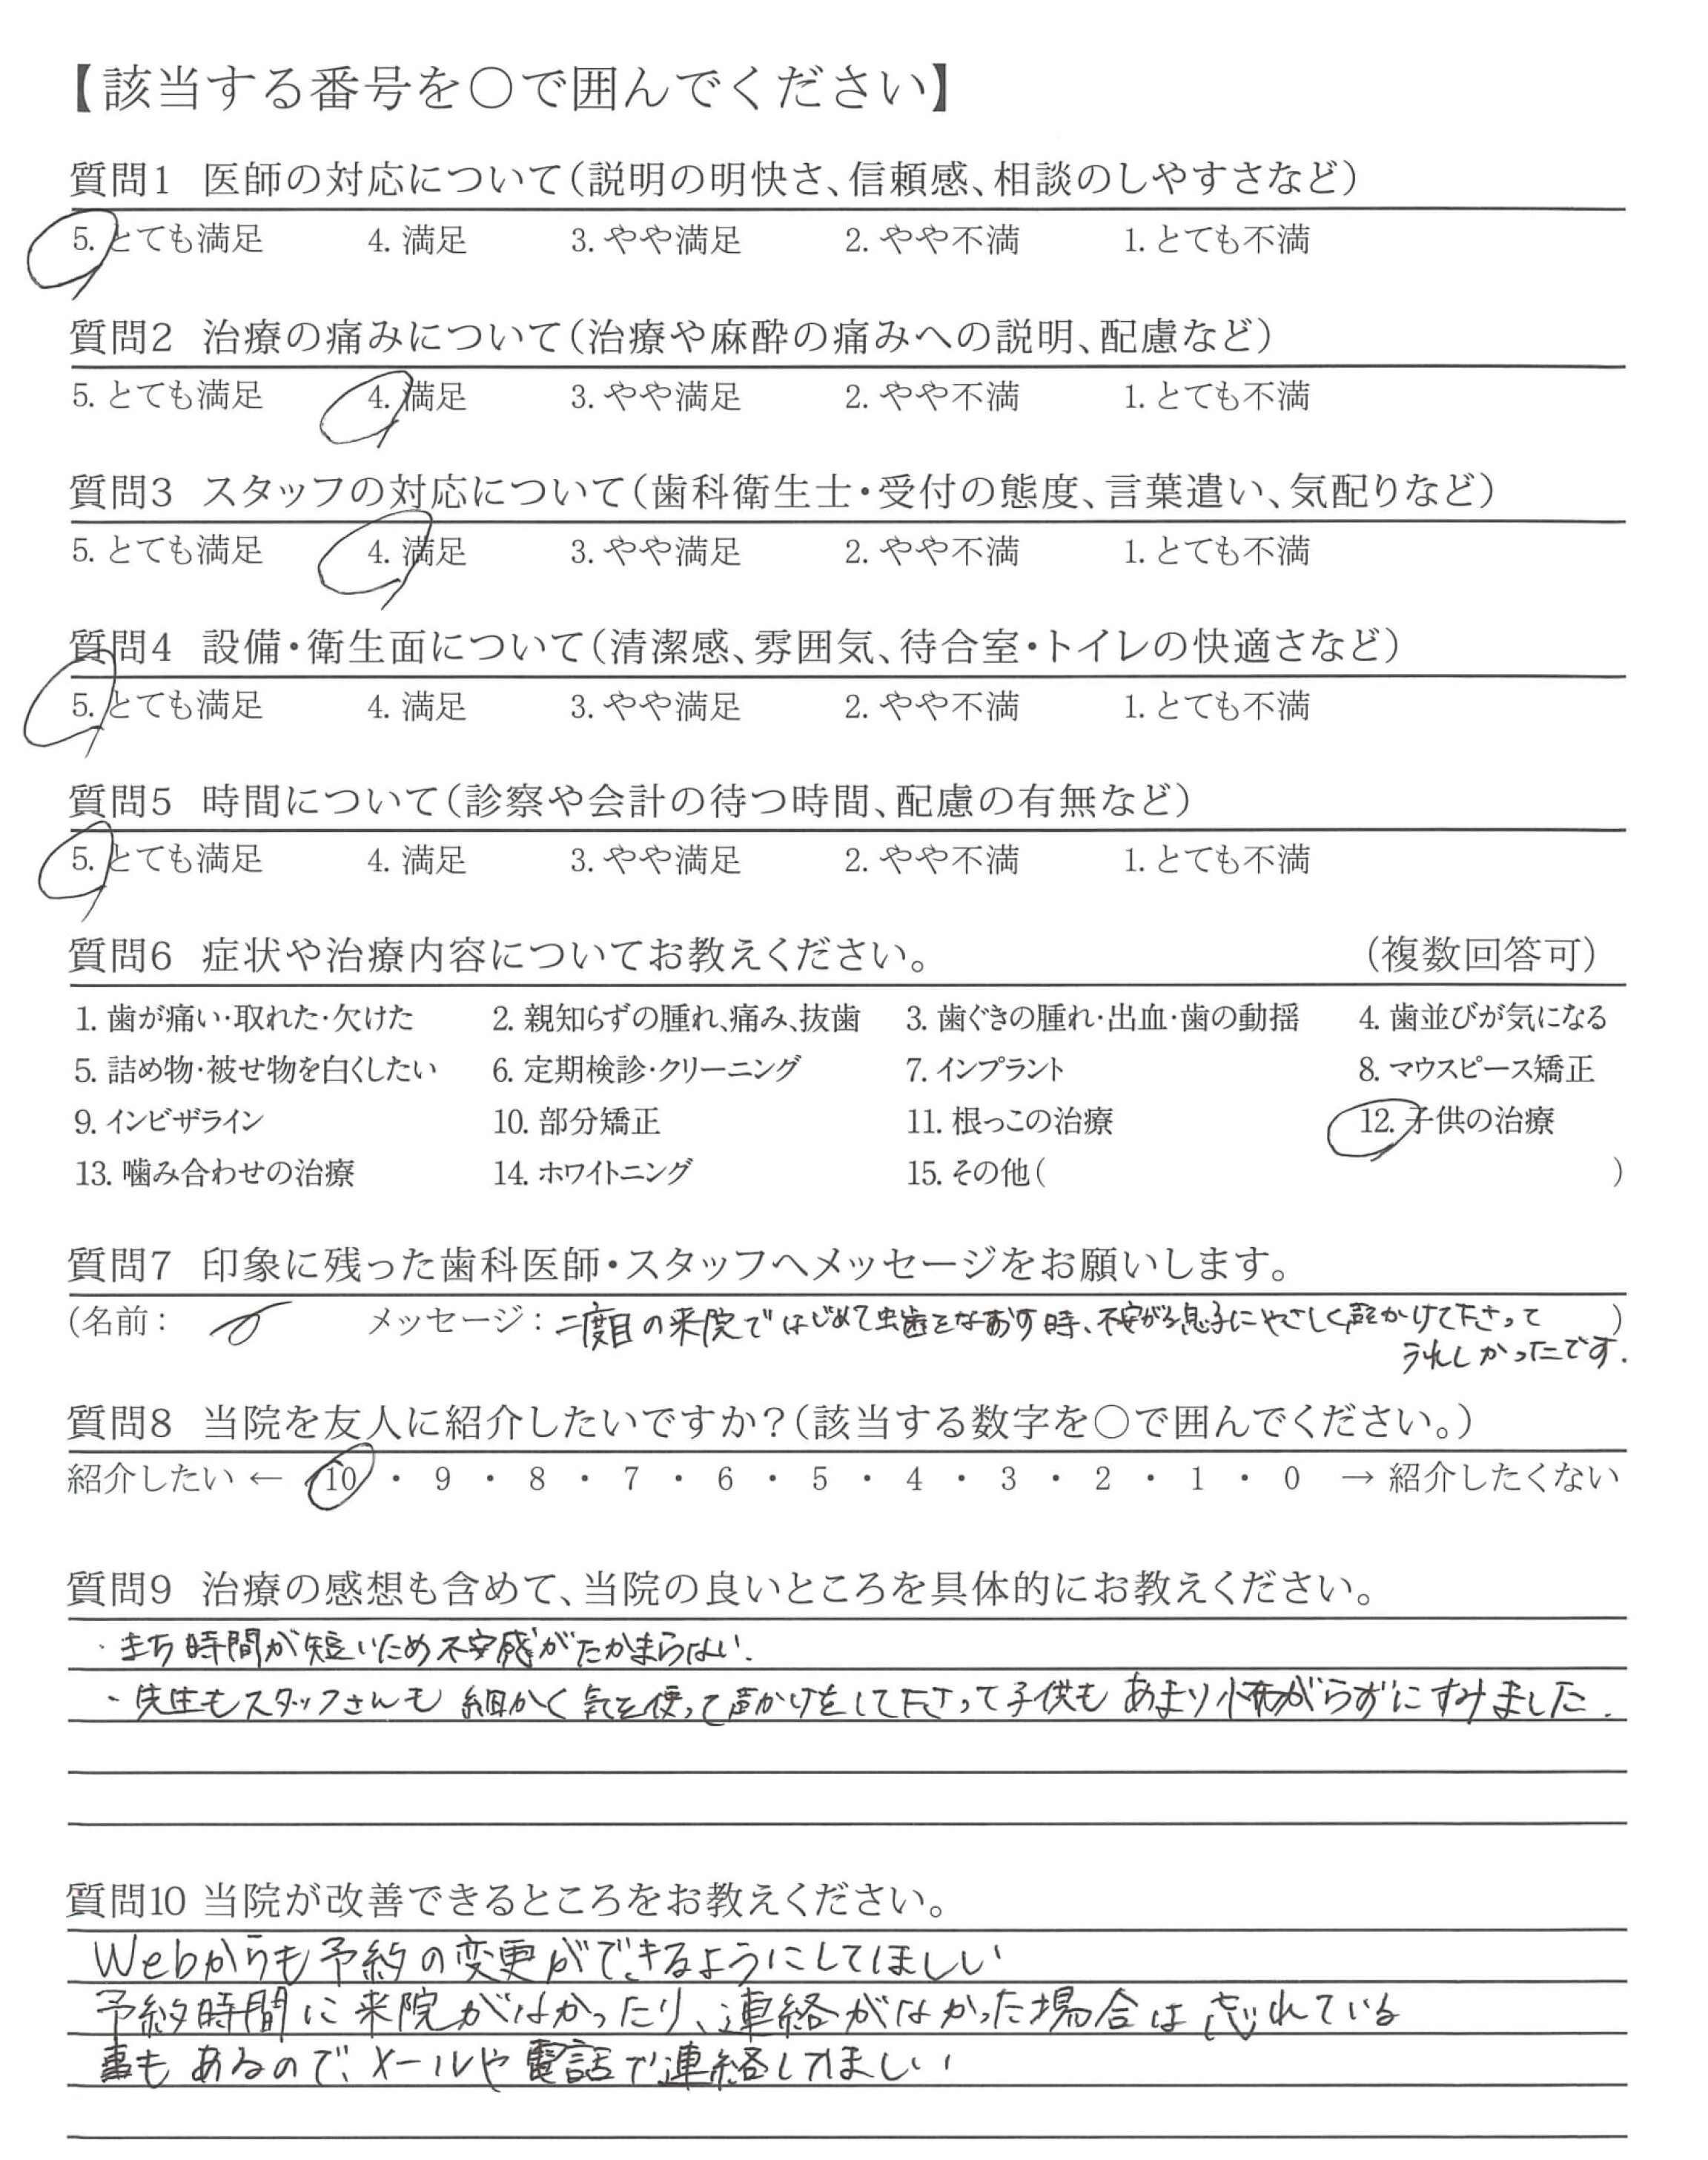 【該当する番号を○で囲んでください】
質問1 医師の対応について(説明の明快さ、信頼感、相談のしやすさなど)
5. とても満足 4. 満足 3. やや満足 2. やや不満 1. とても不満
質問2 治療の痛みについて(治療や麻酔の痛みへの説明、配慮など)
5. とても満足 4. 満足 3. やや満足 2. やや不満 1. とても不満
質問3 スタッフの対応について(歯科衛生士・受付の態度、言葉遣い、気配りなど)
5. とても満足 4. 満足 3. やや満足 2. やや不満 1. とても不満
質問4 設備・衛生面について(清潔感、雰囲気、待合室・トイレの快適さなど)
5. とても満足 4. 満足 3. やや満足 2. やや不満 1. とても不満
質問5 時間について(診察や会計の待つ時間、配慮の有無など)
5. とても満足 4. 満足 3. やや満足 2. やや不満 1. とても不満
質問6 症状や治療内容についてお教えください。 (複数回答可)
1. 歯が痛い・取れた・欠けた 2. 親知らずの腫れ、痛み、抜歯 3. 歯ぐきの腫れ・出血・歯の動揺 4. 歯並びが気になる
5. 詰め物・被せ物を白くしたい 6. 定期検診・クリーニング 7. インプラント 8. マウスピース矯正
9. インビザライン 10. 部分矯正 11. 根っこの治療 12. 子供の治療
13. 噛み合わせの治療 14. ホワイトニング 15. その他( )
質問7 印象に残った歯科医師・スタッフへメッセージをお願いします。
(名前: メッセージ: 二度目の来院ではじめて虫歯をなおす時、不安がる息子にやさしく声かけて下さって )
うれしかったです.
質問8 当院を友人に紹介したいですか?(該当する数字を○で囲んでください。)
紹介したい ← 10 ・ 9 ・ 8 ・ 7 ・ 6 ・ 5 ・ 4 ・ 3 ・ 2 ・ 1 ・ 0 → 紹介したくない
質問9 治療の感想も含めて、当院の良いところを具体的にお教えください。
・まち時間が短いため不安感がたかまらない.
・先生もスタッフさんも 細かく気を使って声かけをして下さって子供も あまり怖がらずにすみました.
質問10 当院が改善できるところをお教えください。
Webからも予約の変更ができるようにしてほしい
予約時間に来院がなかったり、連絡がなかった場合は 忘れている
事も あるので、メールや電話で連絡してほしい